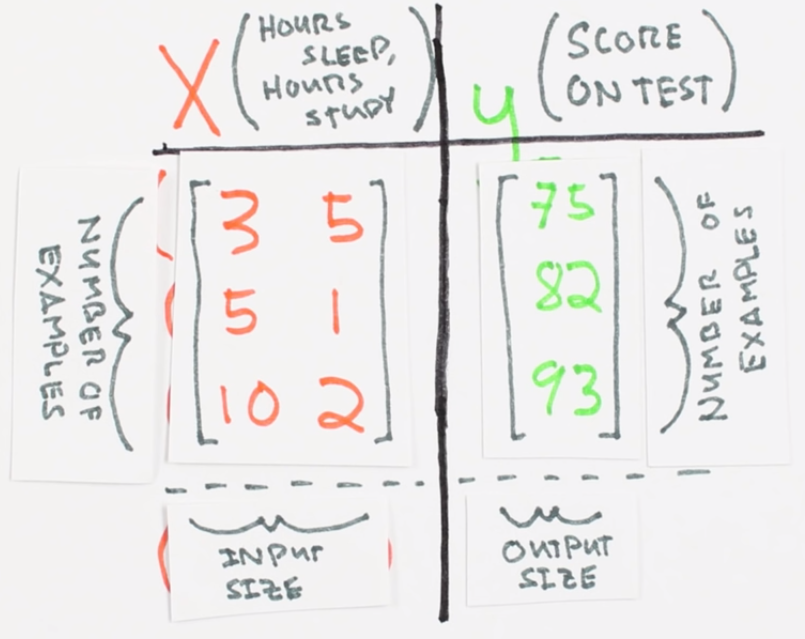 X
(HOURS
SLEEP,
HOURS
STUDY)
y
(SCORE
ON TEST)
NUMBER OF
EXAMPLES
3 5
5 1
10 2
75
82
93
NUMBER OF
EXAMPLES
INPUT
SIZE
OUTPUT
SIZE